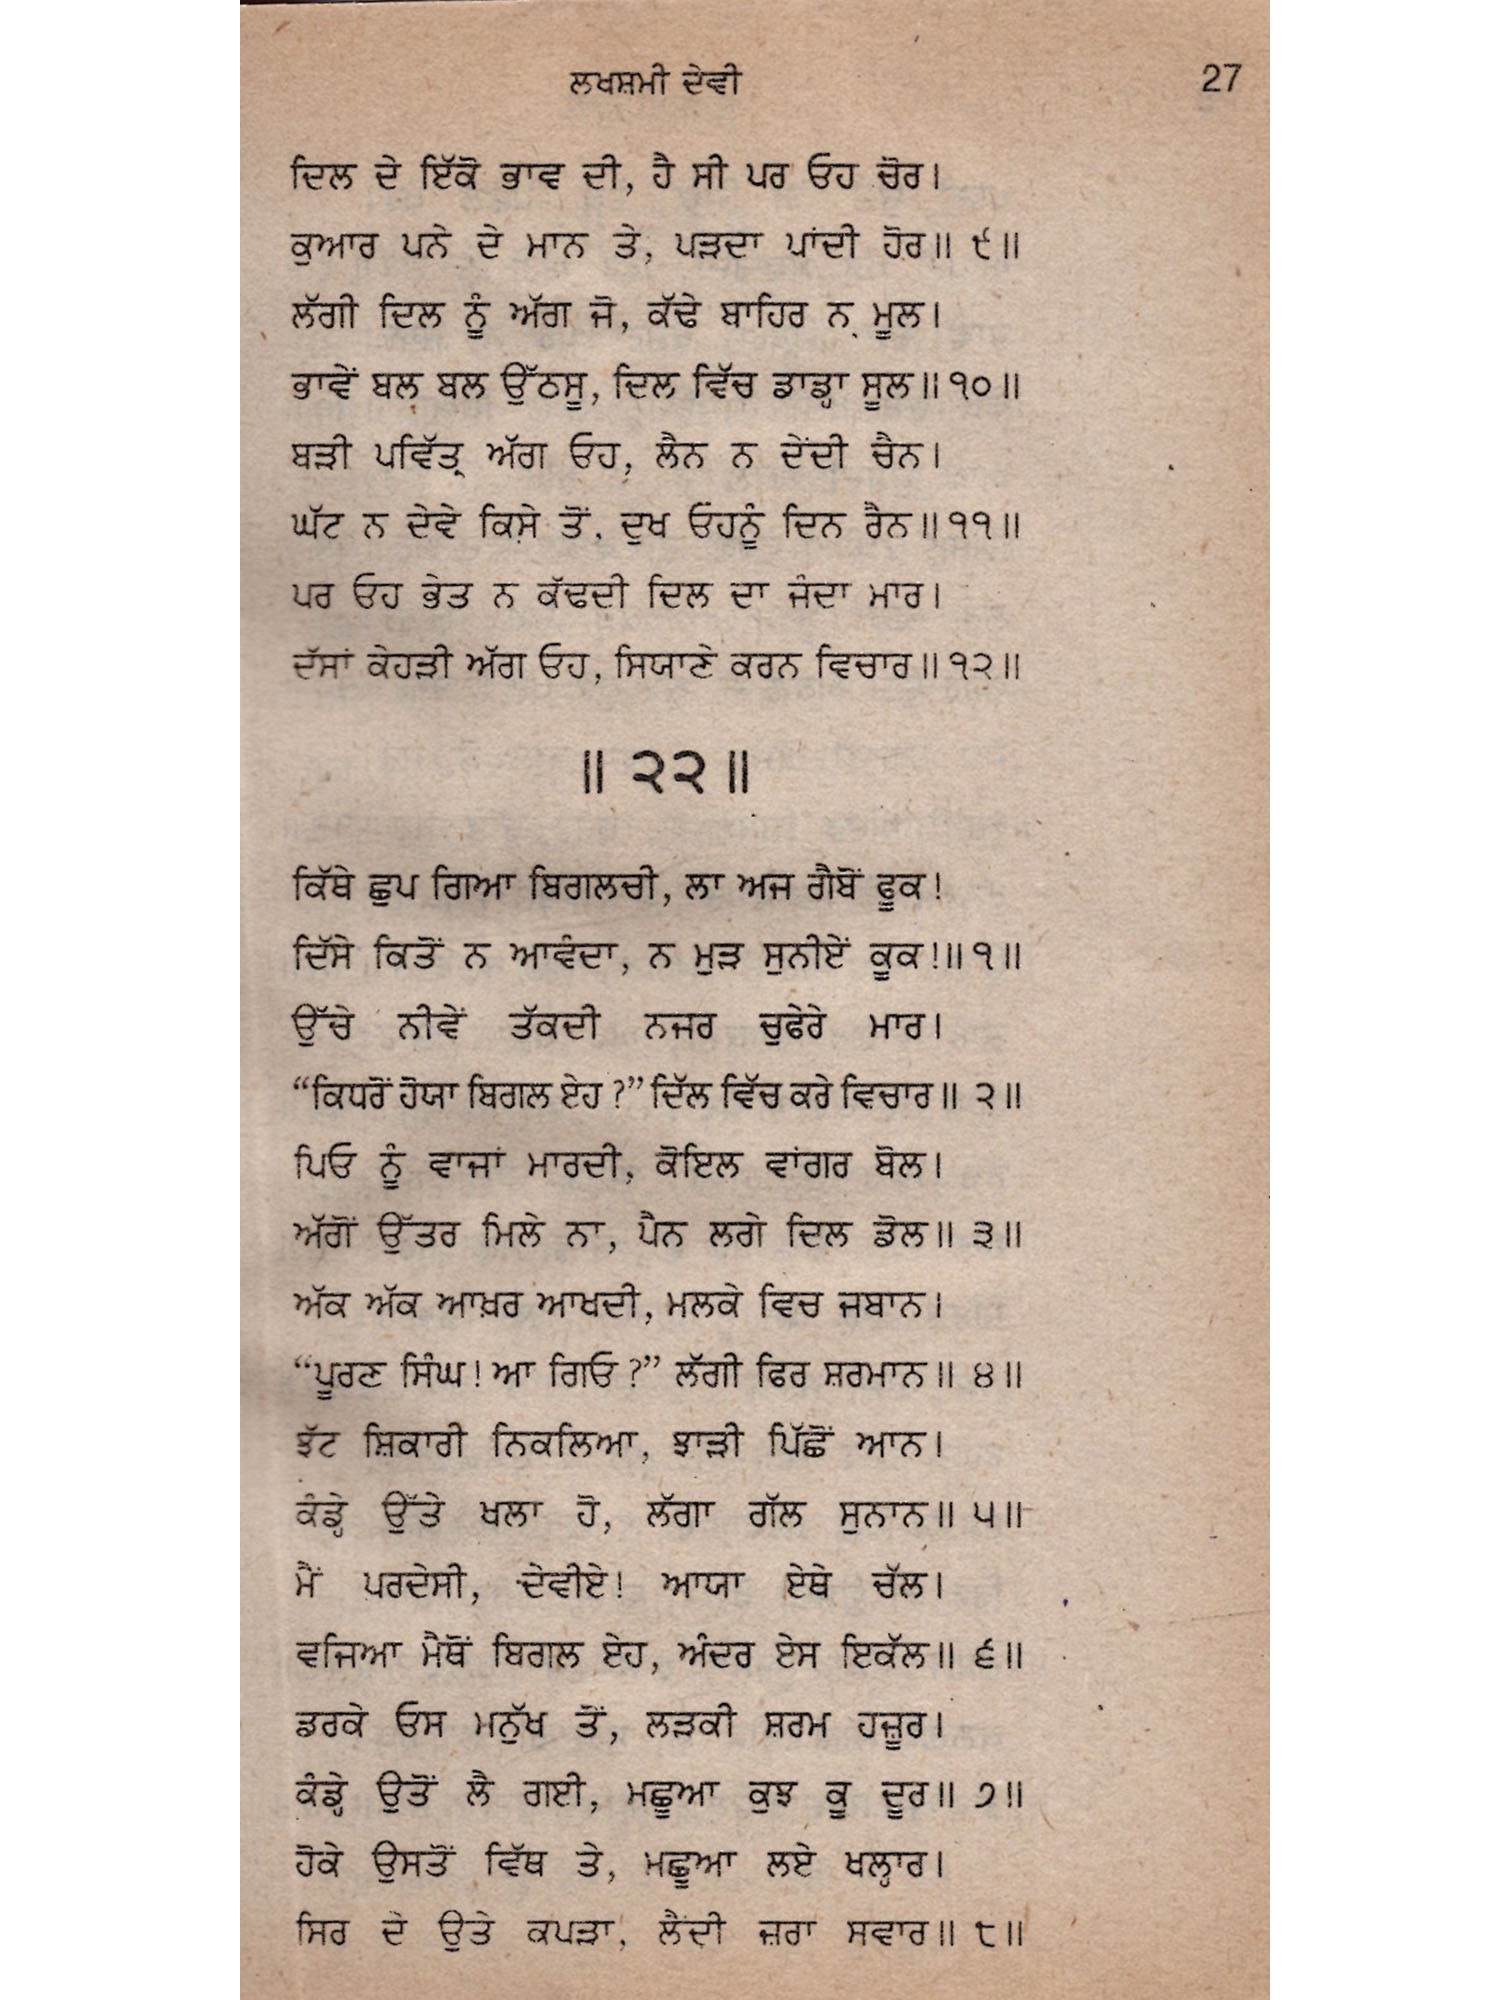 ਲਖਸ਼ਮੀ ਦੇਵੀ 27
ਦਿਲ ਦੇ ਇੱਕੋ ਭਾਵ ਦੀ, ਹੈ ਸੀ ਪਰ ਓਹ ਚੋਰ।
ਕੁਆਰ ਪਨੇ ਦੇ ਮਾਨ ਤੇ, ਪੜਦਾ ਪਾਂਦੀ ਹੋਰ॥ ੯॥
ਲੱਗੀ ਦਿਲ ਨੂੰ ਅੱਗ ਜੋ, ਕੱਢੇ ਬਾਹਿਰ ਨ ਮੂਲ।
ਭਾਵੇਂ ਬਲ ਬਲ ਉੱਠਸੂ, ਦਿਲ ਵਿੱਚ ਡਾਡ੍ਹਾ ਸੂਲ॥੧੦॥
ਬੜੀ ਪਵਿੱਤ੍ਰ ਅੱਗ ਓਹ, ਲੈਨ ਨ ਦੇਂਦੀ ਚੈਨ।
ਘੱਟ ਨ ਦੇਵੇ ਕਿਸੇ ਤੋਂ, ਦੁਖ ਓਹਨੂੰ ਦਿਨ ਰੈਨ॥੧੧॥
ਪਰ ਓਹ ਭੇਤ ਨ ਕੱਢਦੀ ਦਿਲ ਦਾ ਜੰਦਾ ਮਾਰ।
ਦੱਸਾਂ ਕੇਹੜੀ ਅੱਗ ਓਹ, ਸਿਯਾਣੇ ਕਰਨ ਵਿਚਾਰ॥੧੨॥
॥ ੨੨॥
ਕਿੱਥੇ ਛੁਪ ਗਿਆ ਬਿਗਲਚੀ, ਲਾ ਅਜ ਗੈਬੋਂ ਫੂਕ!
ਦਿੱਸੇ ਕਿਤੋਂ ਨ ਆਵੰਦਾ, ਨ ਮੁੜ ਸੁਨੀਏਂ ਕੂਕ!॥੧॥
ਉੱਚੇ ਨੀਵੇਂ ਤੱਕਦੀ ਨਜਰ ਚੁਫੇਰੇ ਮਾਰ।
“ਕਿਧਰੋਂ ਹੋਯਾ ਬਿਗਲ ਏਹ?” ਦਿੱਲ ਵਿੱਚ ਕਰੇ ਵਿਚਾਰ॥ ੨॥
ਪਿਓ ਨੂੰ ਵਾਜਾਂ ਮਾਰਦੀ, ਕੋਇਲ ਵਾਂਗਰ ਬੋਲ।
ਅੱਗੋਂ ਉੱਤਰ ਮਿਲੇ ਨਾ, ਪੈਨ ਲਗੇ ਦਿਲ ਡੋਲ॥ ੩॥
ਅੱਕ ਅੱਕ ਆਖ਼ਰ ਆਖਦੀ, ਮਲਕੇ ਵਿਚ ਜਬਾਨ।
“ਪੂਰਣ ਸਿੰਘ! ਆ ਗਿਓ?” ਲੱਗੀ ਫਿਰ ਸ਼ਰਮਾਨ॥ ੪॥
ਝੱਟ ਸ਼ਿਕਾਰੀ ਨਿਕਲਿਆ, ਝਾੜੀ ਪਿੱਛੋਂ ਆਨ।
ਕੰਢ੍ਹੇ ਉੱਤੇ ਖਲਾ ਹੋ, ਲੱਗਾ ਗੱਲ ਸੁਨਾਨ॥ ੫॥
ਮੈਂ ਪਰਦੇਸੀ, ਦੇਵੀਏ! ਆਯਾ ਏਥੇ ਚੱਲ।
ਵਜਿਆ ਮੈਥੋਂ ਬਿਗਲ ਏਹ, ਅੰਦਰ ਏਸ ਇਕੱਲ॥ ੬॥
ਡਰਕੇ ਓਸ ਮਨੁੱਖ ਤੋਂ, ਲੜਕੀ ਸ਼ਰਮ ਹਜ਼ੂਰ।
ਕੰਢ੍ਹੇ ਉਤੋਂ ਲੈ ਗਈ, ਮਛੂਆ ਕੁਝ ਕੂ ਦੂਰ॥ ੭॥
ਹੋਕੇ ਉਸਤੋਂ ਵਿੱਥ ਤੇ, ਮਛੂਆ ਲਏ ਖਲ੍ਹਾਰ।
ਸਿਰ ਦੇ ਉਤੇ ਕਪੜਾ, ਲੈਂਦੀ ਜ਼ਰਾ ਸਵਾਰ॥ ੮॥